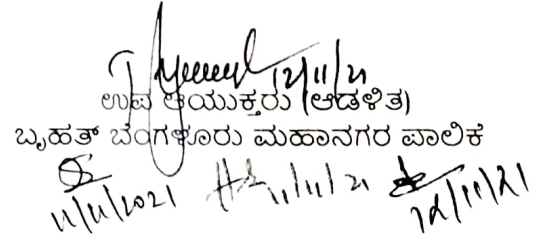 12/11/21
ಉಪ ಆಯುಕ್ತರು (ಆಡಳಿತ)
ಬೃಹತ್ ಬೆಂಗಳೂರು ಮಹಾನಗರ ಪಾಲಿಕೆ
11/11/2021 11/11/21 12/11/21